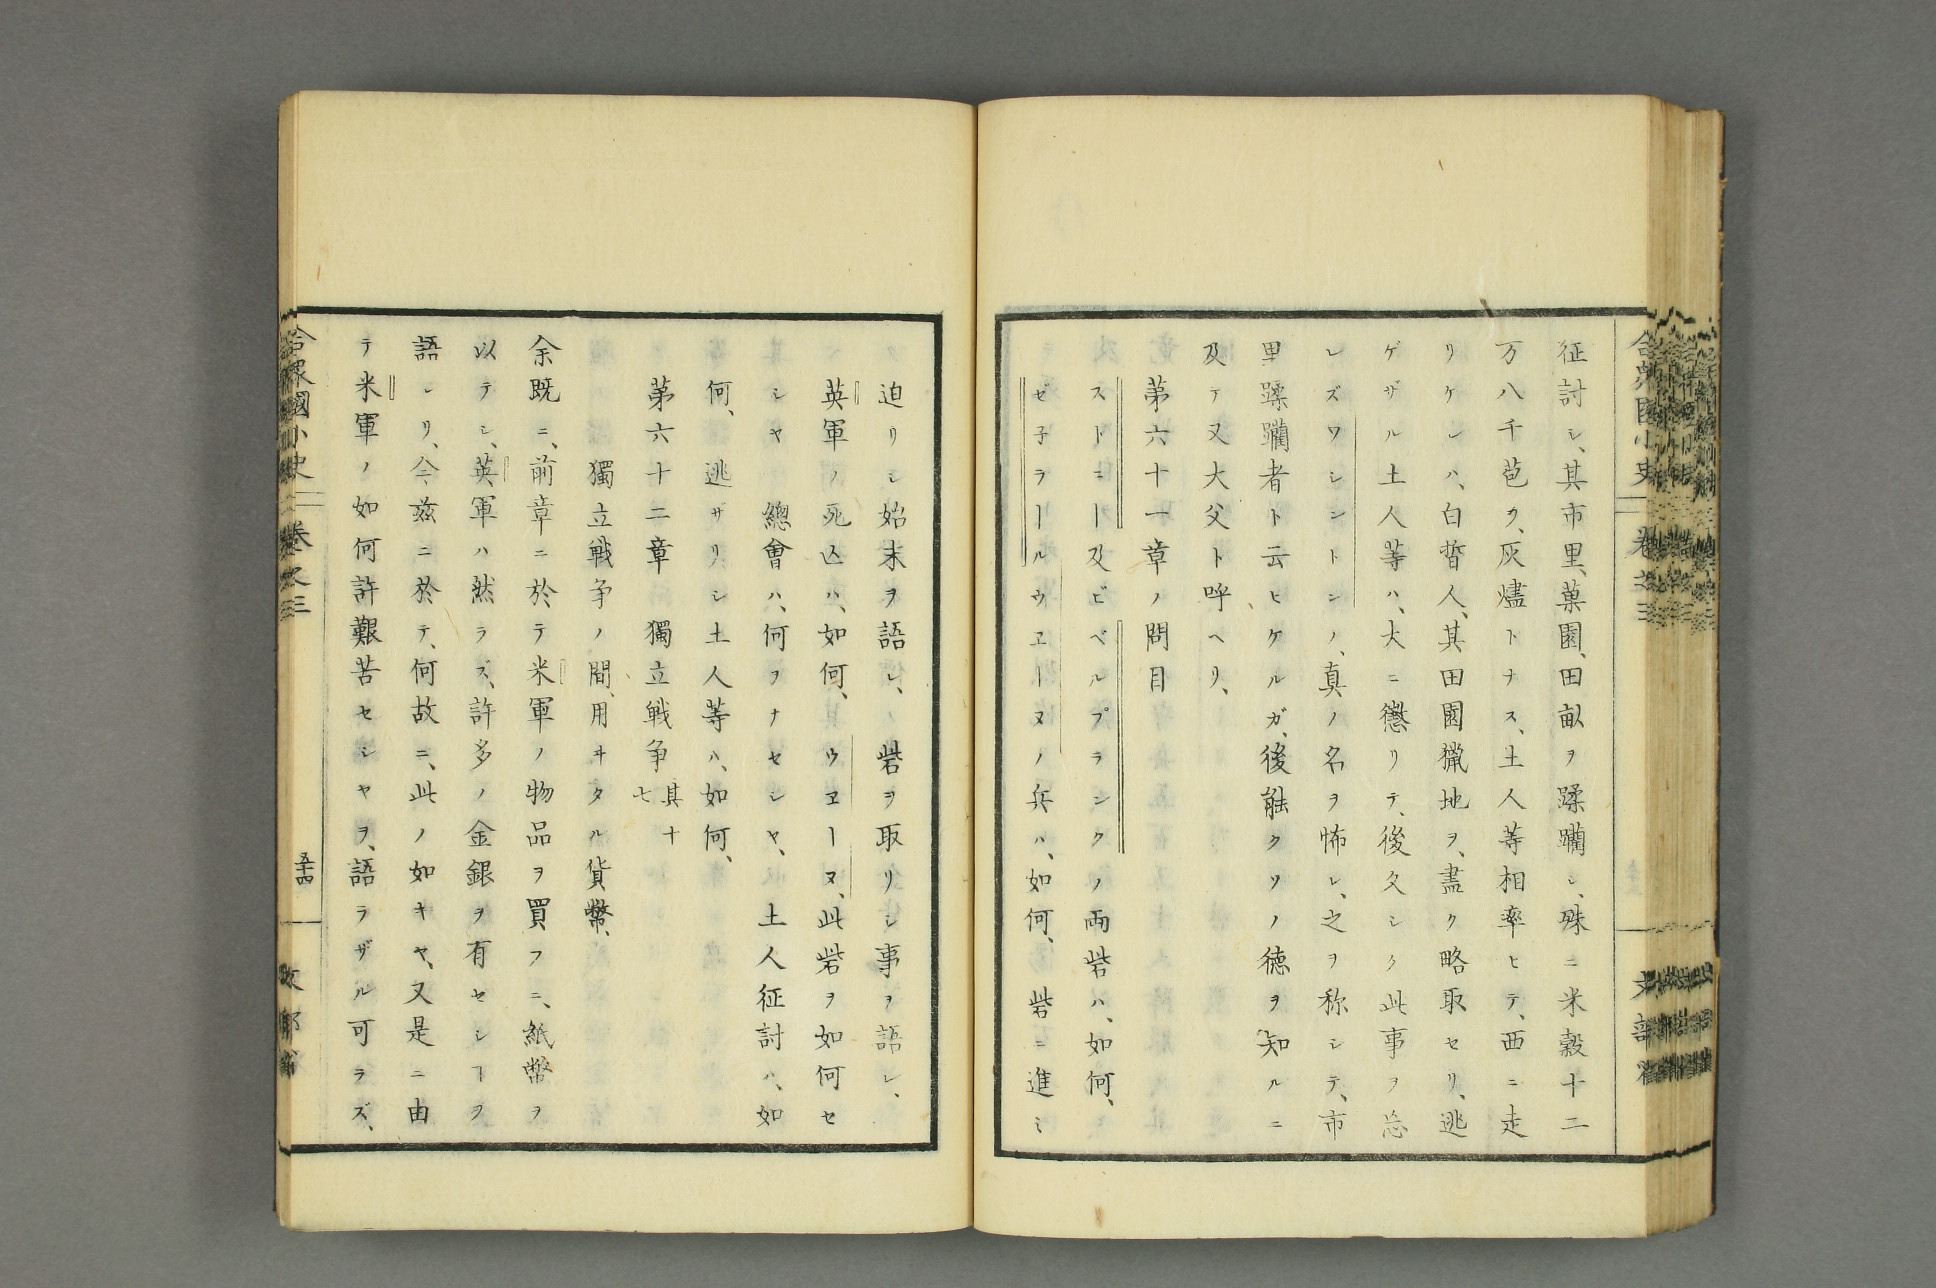 征討シ、其市里、菓園、田畝ヲ蹂躙シ、殊ニ米穀十二
万八千苞ヲ、灰燼トナス、土人等相率ヒテ、西ニ走
リケレハ、白晳人、其田園猟地ヲ、盡ク略取セリ、逃
ゲザル土人等ハ、大ニ懲リテ、後久シク此事ヲ忘
レズワシントンノ、真ノ名ヲ怖レ、之ヲ称シテ、市
里蹂躙者ト云ヒケルガ、後能クソノ徳ヲ知ルニ
及テ又大父ト呼ヘリ、
第六十一章ノ問目
ストニー及ビベルプランクノ両砦ハ、如何、
ゼ子ラールウエーヌノ兵ハ、如何、砦ニ進ミ
合衆國小史 卷之三
文部省
迫リシ始末ヲ語レ、砦ヲ取リシ事ヲ語レ、
英軍ノ死亡ハ、如何、ウエーヌ、此砦ヲ如何セ
シヤ 總會ハ、何ヲナセシヤ、土人征討ハ、如
何、逃ザリシ土人等ハ、如何、
第六十二章 獨立戦争 其十七
獨立戦争ノ、間、用ヰタル貨幣、
余既ニ、前章ニ於テ米軍ノ物品ヲ買フニ、紙幣ヲ
以テシ、英軍ハ然ラズ、許多ノ金銀ヲ有セシヿヲ
語レリ、今茲ニ於テ、何故ニ、此ノ如キヤ、又是ニ由
テ米軍ノ如何許艱苦セシヤヲ、語ラザル可ラズ、
合衆國小史 卷之三
五十四
文部省